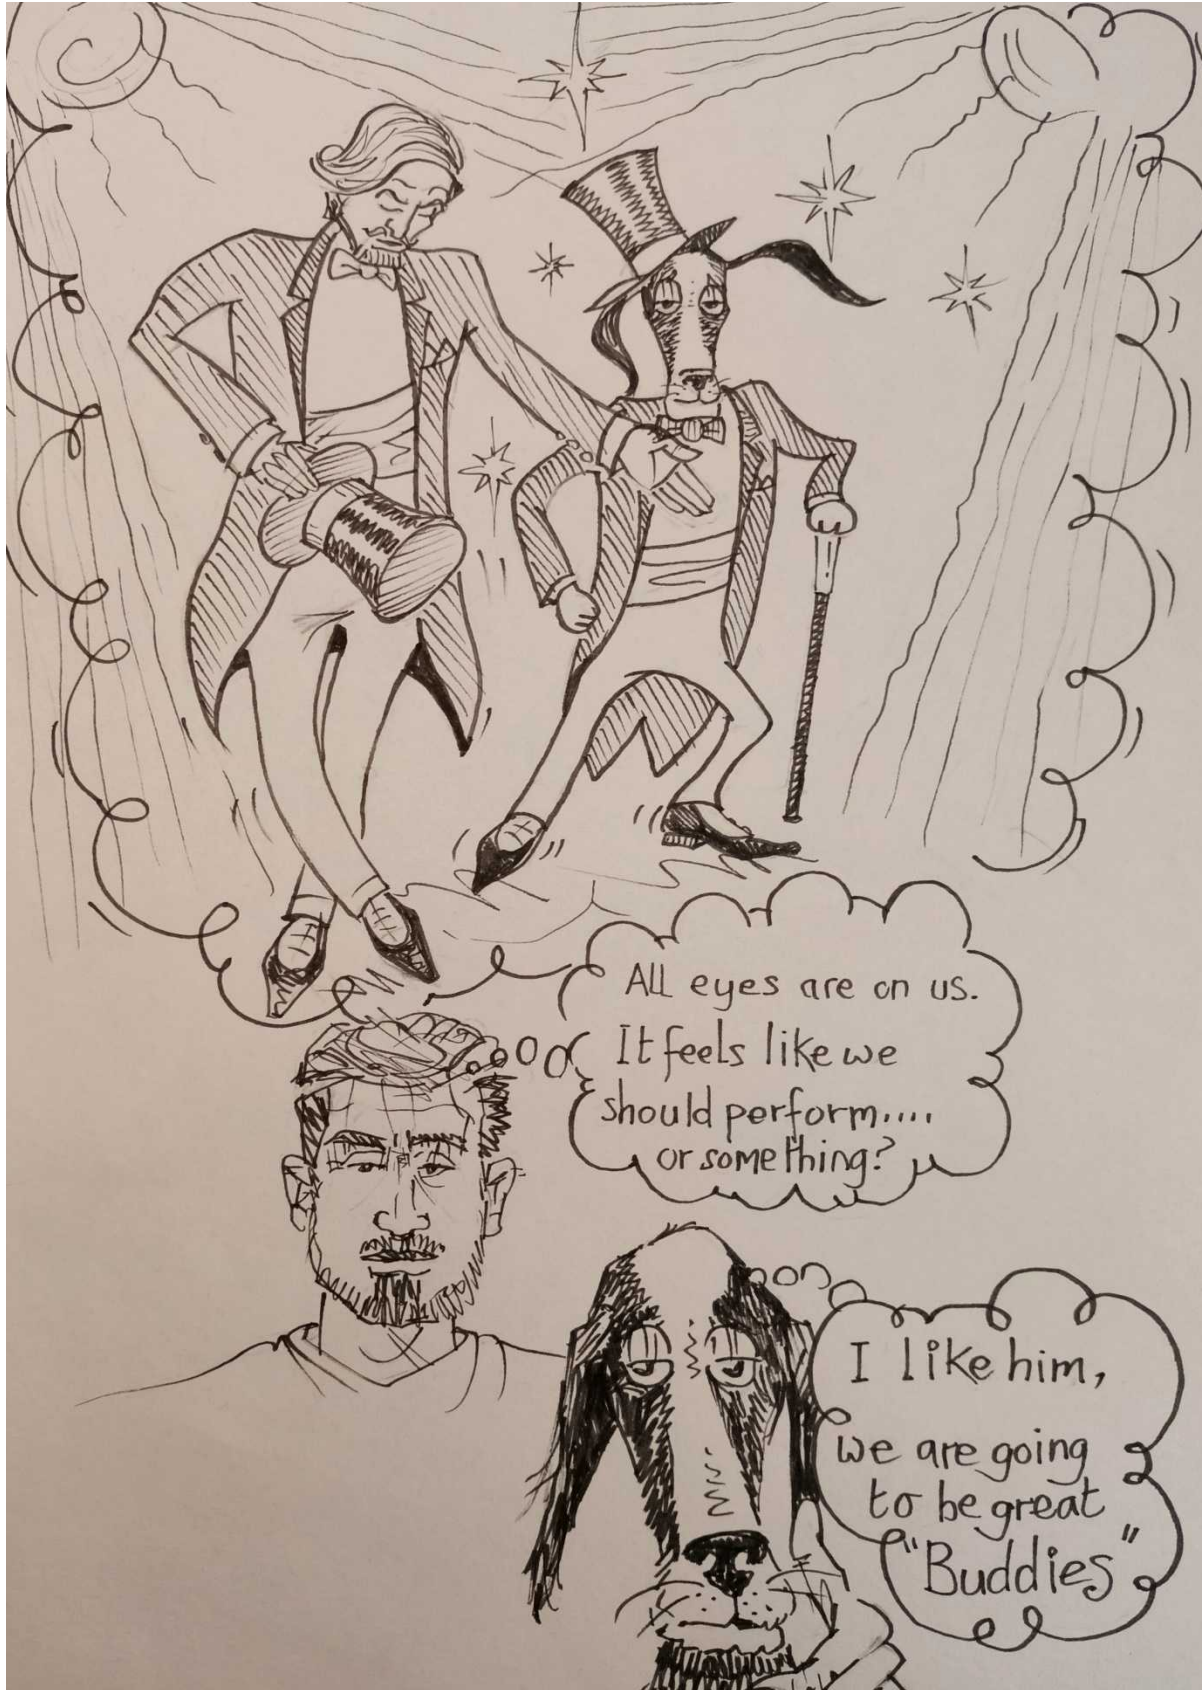 All eyes are on us.
It feels like we
should perform....
or something?
I like him,
we are going
to be great
"Buddies"